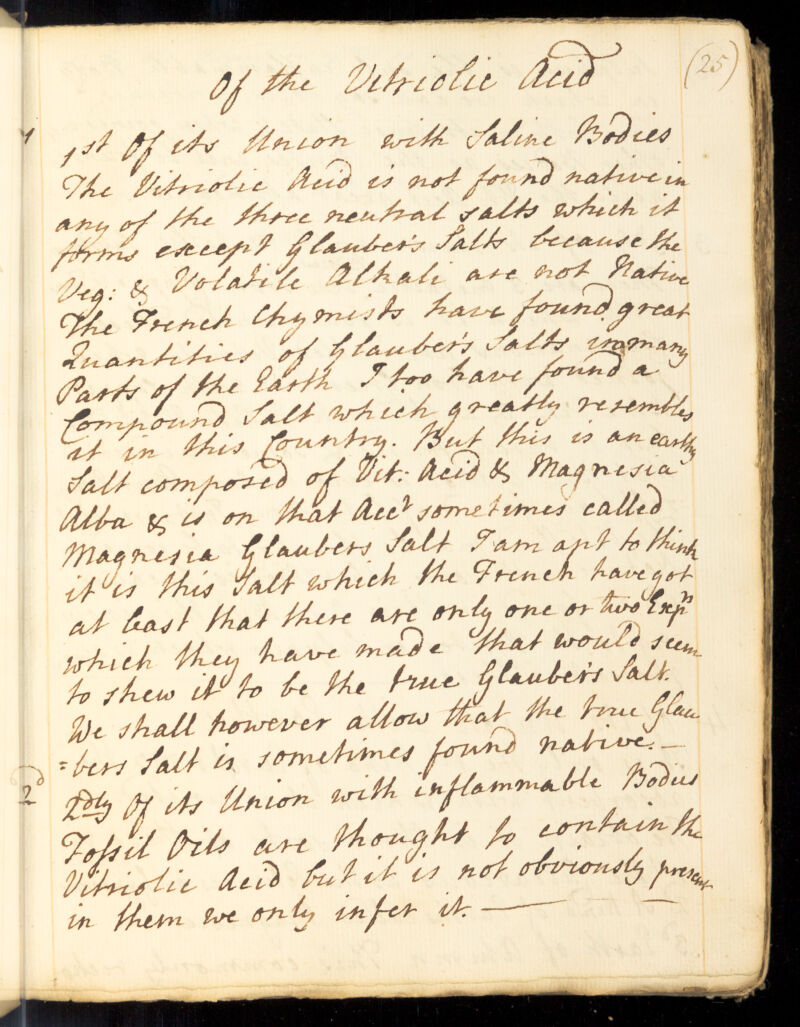 (25)
Of the Vitriolic Acid
1
1st Of its Union with Saline Bodies
The Vitriolic Acid is not found native in
any of the three neutral salts which it
forms except Glauber's Salts because the
Veg: & Volatile Alkali are not Native
The French Chymists have found great
Quantities of Glauber's Salts in many
Parts of the Earth I too have found a
Compound Salt which greatly resembles
it in this Country. But this is an earthy
Salt composed of Vit: Acid & Magnesia
Alba & is on that Acct sometimes called
Magnesia Glaubers Salt I am apt to think
it is this Salt which the French have got
at least that there are only one or two Expts
which they have made that would seem
to shew it to be the true Glauber's Salt.
We shall however allow that the true Glau
=bers Salt is sometimes found native. —
2d
2dly Of its Union with inflammable Bodies
Fossil Oils are thought to contain the
Vitriolic Acid but it is not obviously present
in them we only infer it. — —